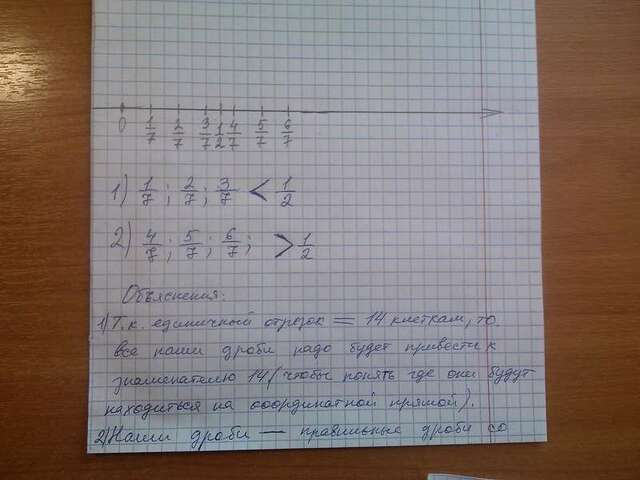 0 1/7 2/7 3/7 1/2 4/7 5/7 6/7
1) 1/7 ; 2/7 ; 3/7 < 1/2
2) 4/7 ; 5/7 ; 6/7 ; > 1/2
Объяснения:
1) Т.к. единичный отрезок = 14 клеткам, то
все наши дроби надо будет привести к
знаменателю 14 (чтобы понять где они будут
находиться на координатной прямой).
2) Наши дроби — правильные дроби со